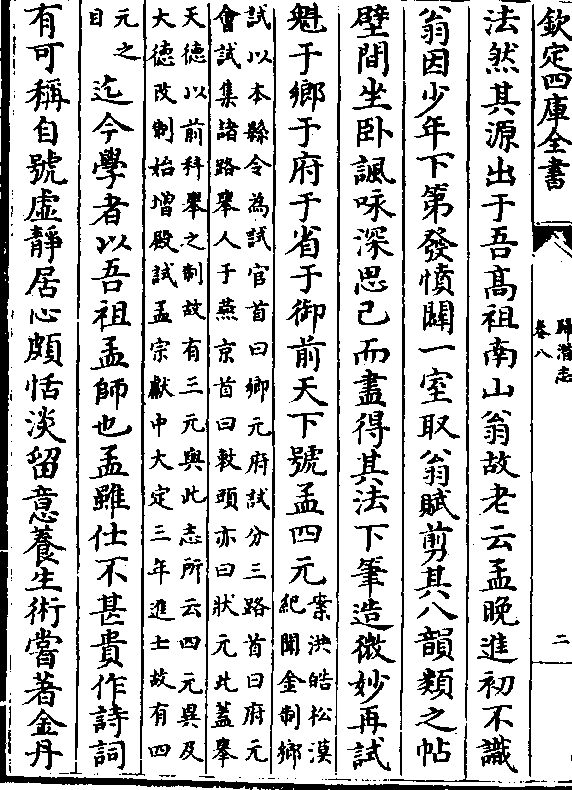 欽定四庫全書
歸潛志
卷八
二
法然其源出于吾髙祖南山翁故老云孟晚進初不識
翁因少年下第發憤闢一室取翁賦剪其八韻類之帖
壁間坐卧諷咏深思已而盡得其法下筆造微妙再試
魁于鄉于府于省于御前天下號孟四元案洪皓松漠
紀聞金制鄉
試以本縣令為試官首曰鄉元府試分三路首曰府元
會試集諸路舉人于燕京首曰敕頭亦曰狀元此葢舉
天德以前科舉之制故有三元與此志所云四元異及
大德改制始增殿試孟宗獻中大定三年進士故有四
元之
目
迄今學者以吾祖孟師也孟雖仕不甚貴作詩詞
有可稱自號虛靜居心頗恬淡留意養生術嘗著金丹